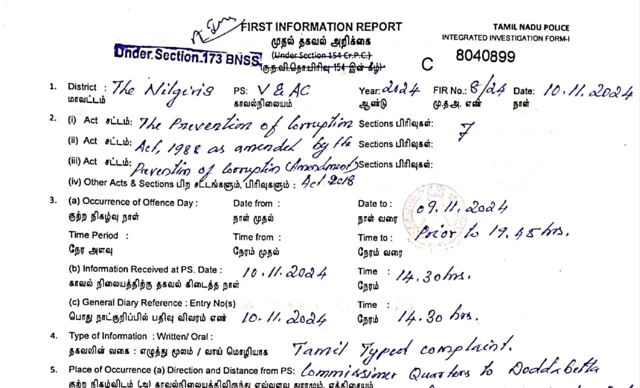 FIRST INFORMATION REPORT
TAMIL NADU POLICE
முதல் தகவல் அறிக்கை
INTEGRATED INVESTIGATION FORM-I
Under.Section.173 BNSS
(Under Section 154 Cr.P.C.)
(கு.ந.வி.தொ.பிரிவு 154 இன் கீழ்)
C 8040899
1. District : The Nilgiris PS: V & AC Year: 2024 FIR No.: 8/24 Date: 10.11.2024
மாவட்டம் காவல்நிலையம் ஆண்டு மு.த.அ. எண் நாள்
2. (i) Act சட்டம்: The Prevention of Corruption Sections பிரிவுகள்: 7
(ii) Act சட்டம்: Act, 1988 as amended by the Sections பிரிவுகள்:
(iii) Act சட்டம்: Prevention of Corruption (Amendment) Sections பிரிவுகள்:
(iv) Other Acts & Sections பிற சட்டங்களும், பிரிவுகளும் : Act 2018
3. (a) Occurrence of Offence Day : Date from : Date to : 09.11.2024
குற்ற நிகழ்வு நாள் நாள் முதல் நாள் வரை
Time Period : Time from : Time to : Prior to 19.45 hrs.
நேர அளவு நேரம் முதல் நேரம் வரை
(b) Information Received at PS. Date : 10.11.2024 Time : 14.30 hrs.
காவல் நிலையத்திற்கு தகவல் கிடைத்த நாள் நேரம்
(c) General Diary Reference : Entry No(s) Time :
பொது நாட்குறிப்பில் பதிவு விவரம் எண் 10.11.2024 நேரம் 14.30 hrs.
4. Type of Information : Written/ Oral :
தகவலின் வகை : எழுத்து மூலம் / வாய் மொழியாக Tamil Typed complaint.
5. Place of Occurrence (a) Direction and Distance from PS: Commissioner Quarters to Doddabetta
குற்ற நிகழ்விடம் (அ) காவல்நிலையத்திலிருந்து எவ்வளவு தூரமும், எத்திசையும்